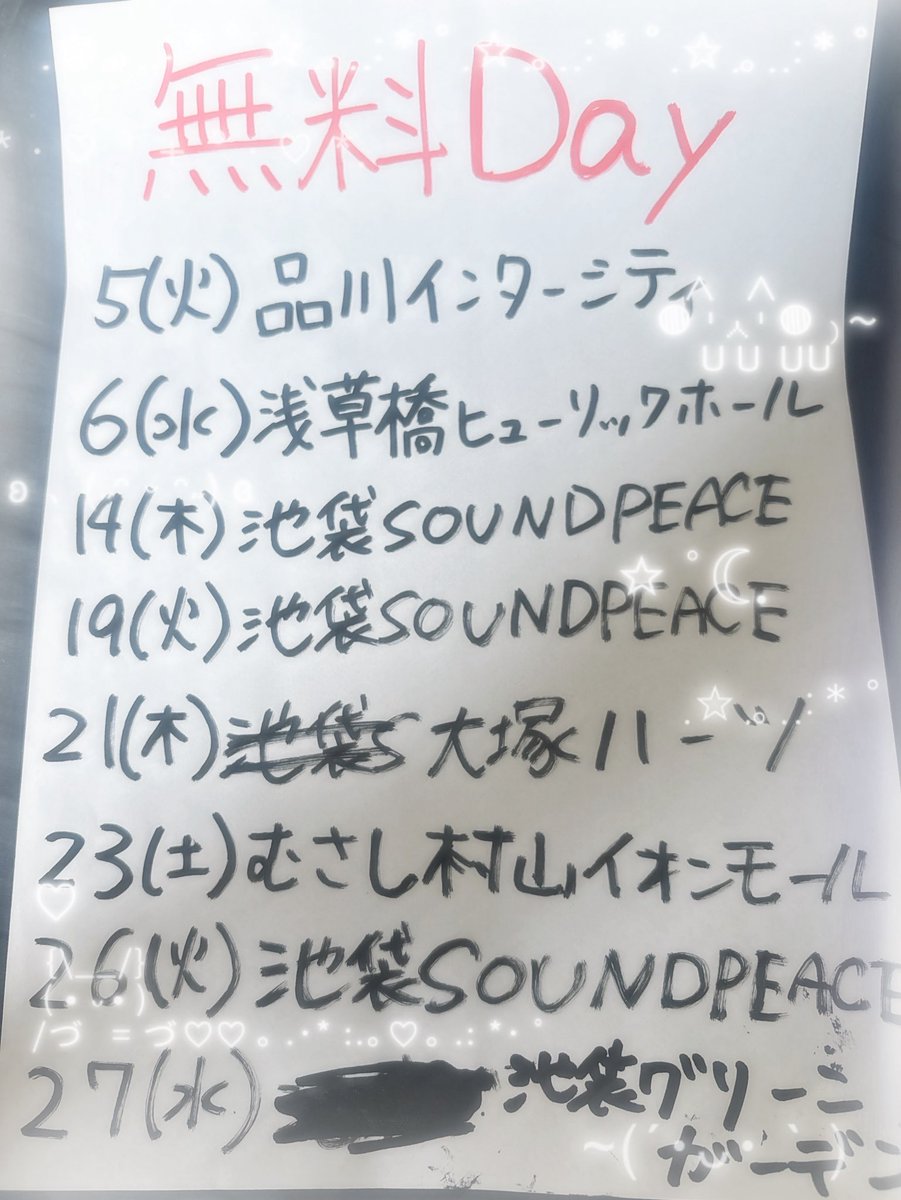 無料Day
5(火)品川インターシティ
6(水)浅草橋ヒューリックホール
14(木)池袋SOUNDPEACE
19(火)池袋SOUNDPEACE
21(木)池袋S 大塚ハーツ
23(土)むさし村山イオンモール
26(火)池袋SOUNDPEACE
27(水) 池袋グリーン
ガーデン